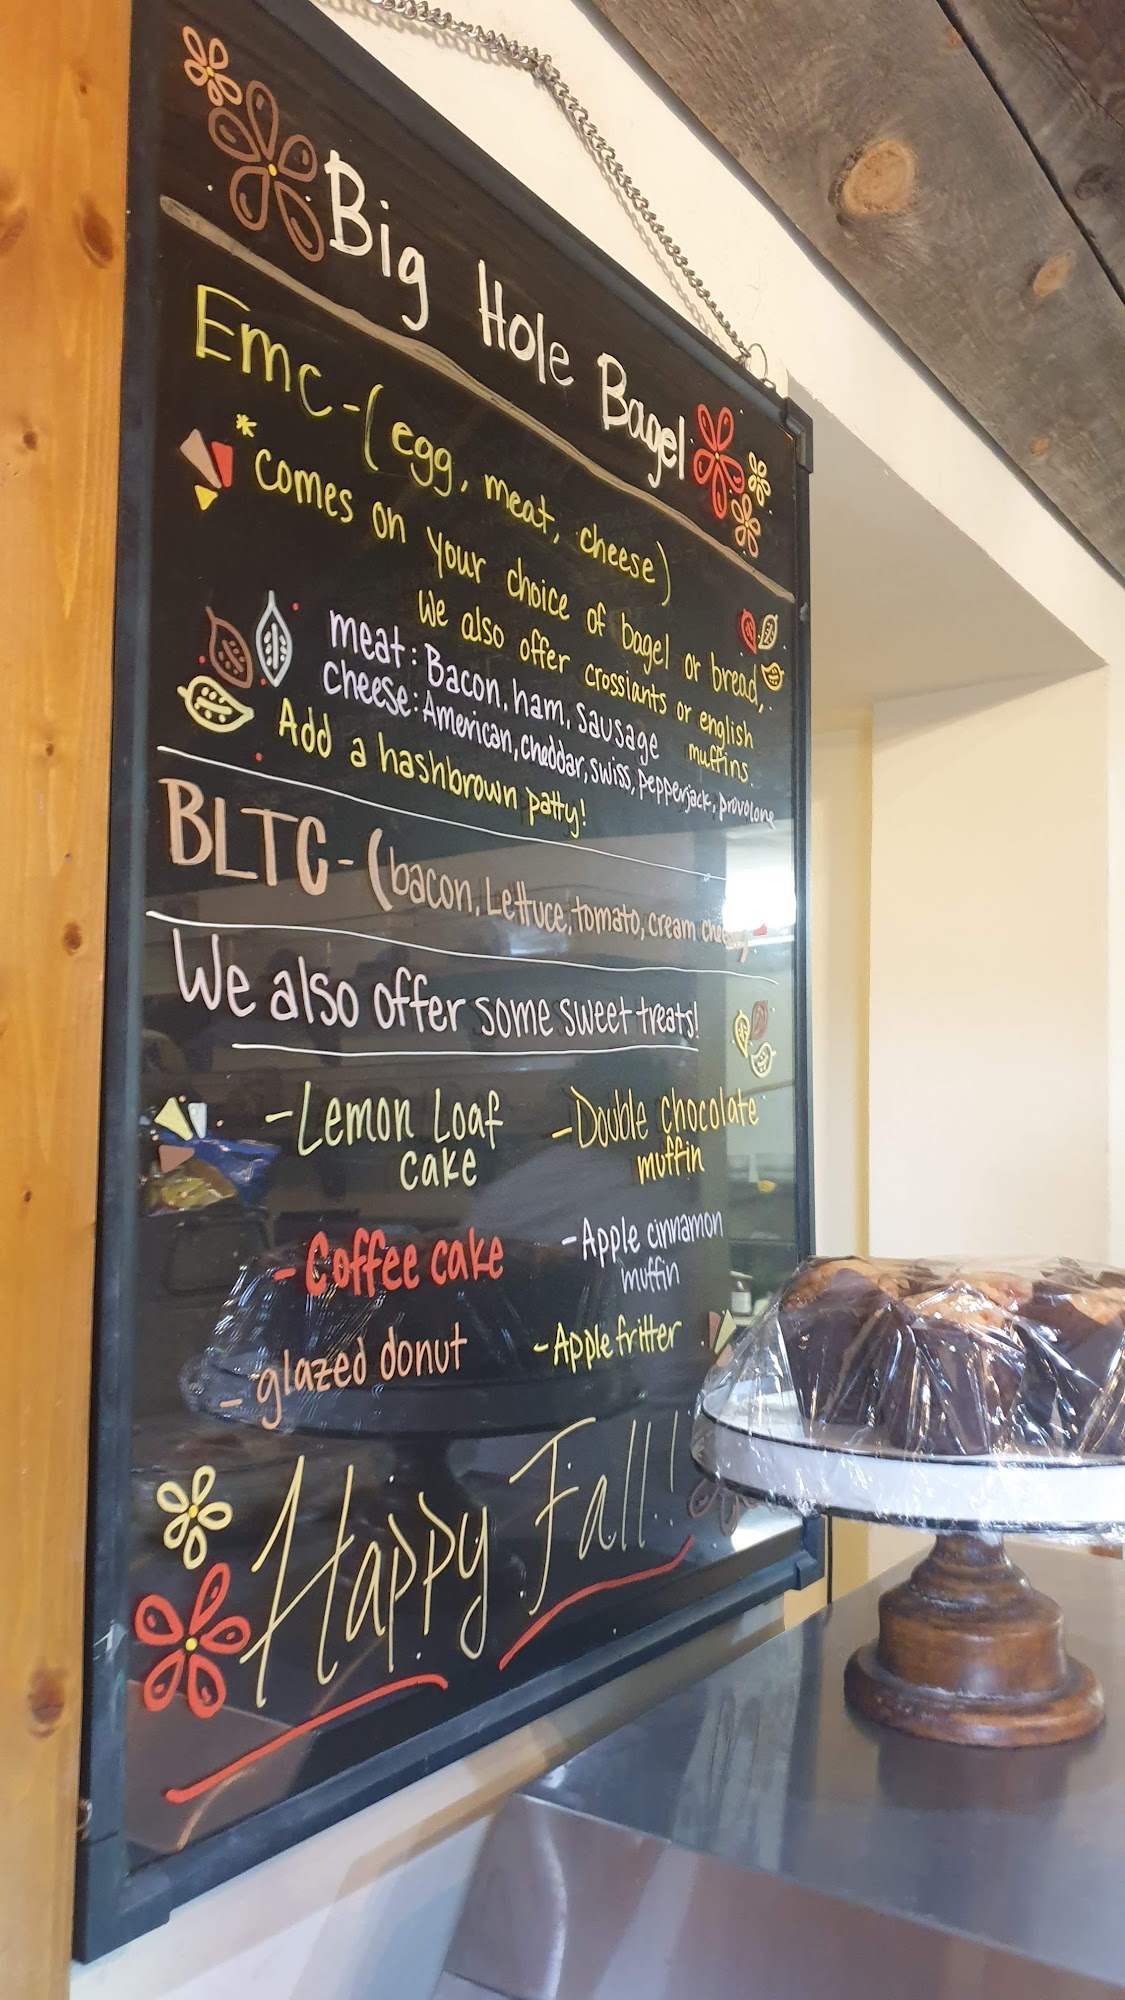 Big Hole Bagel
Emc - (egg, meat, cheese)
*comes on your choice of bagel or bread,
We also offer crossiants or english
muffins.
meat: Bacon, ham, sausage
cheese: American, cheddar, swiss, pepperjack, provolone
Add a hashbrown patty!
BLTC - (bacon, Lettuce, tomato, cream cheese)
We also offer some sweet treats!
- Lemon Loaf
cake
- Double chocolate
muffin
- Coffee cake
- Apple cinnamon
muffin
- glazed donut
- Apple fritter
Happy Fall!!